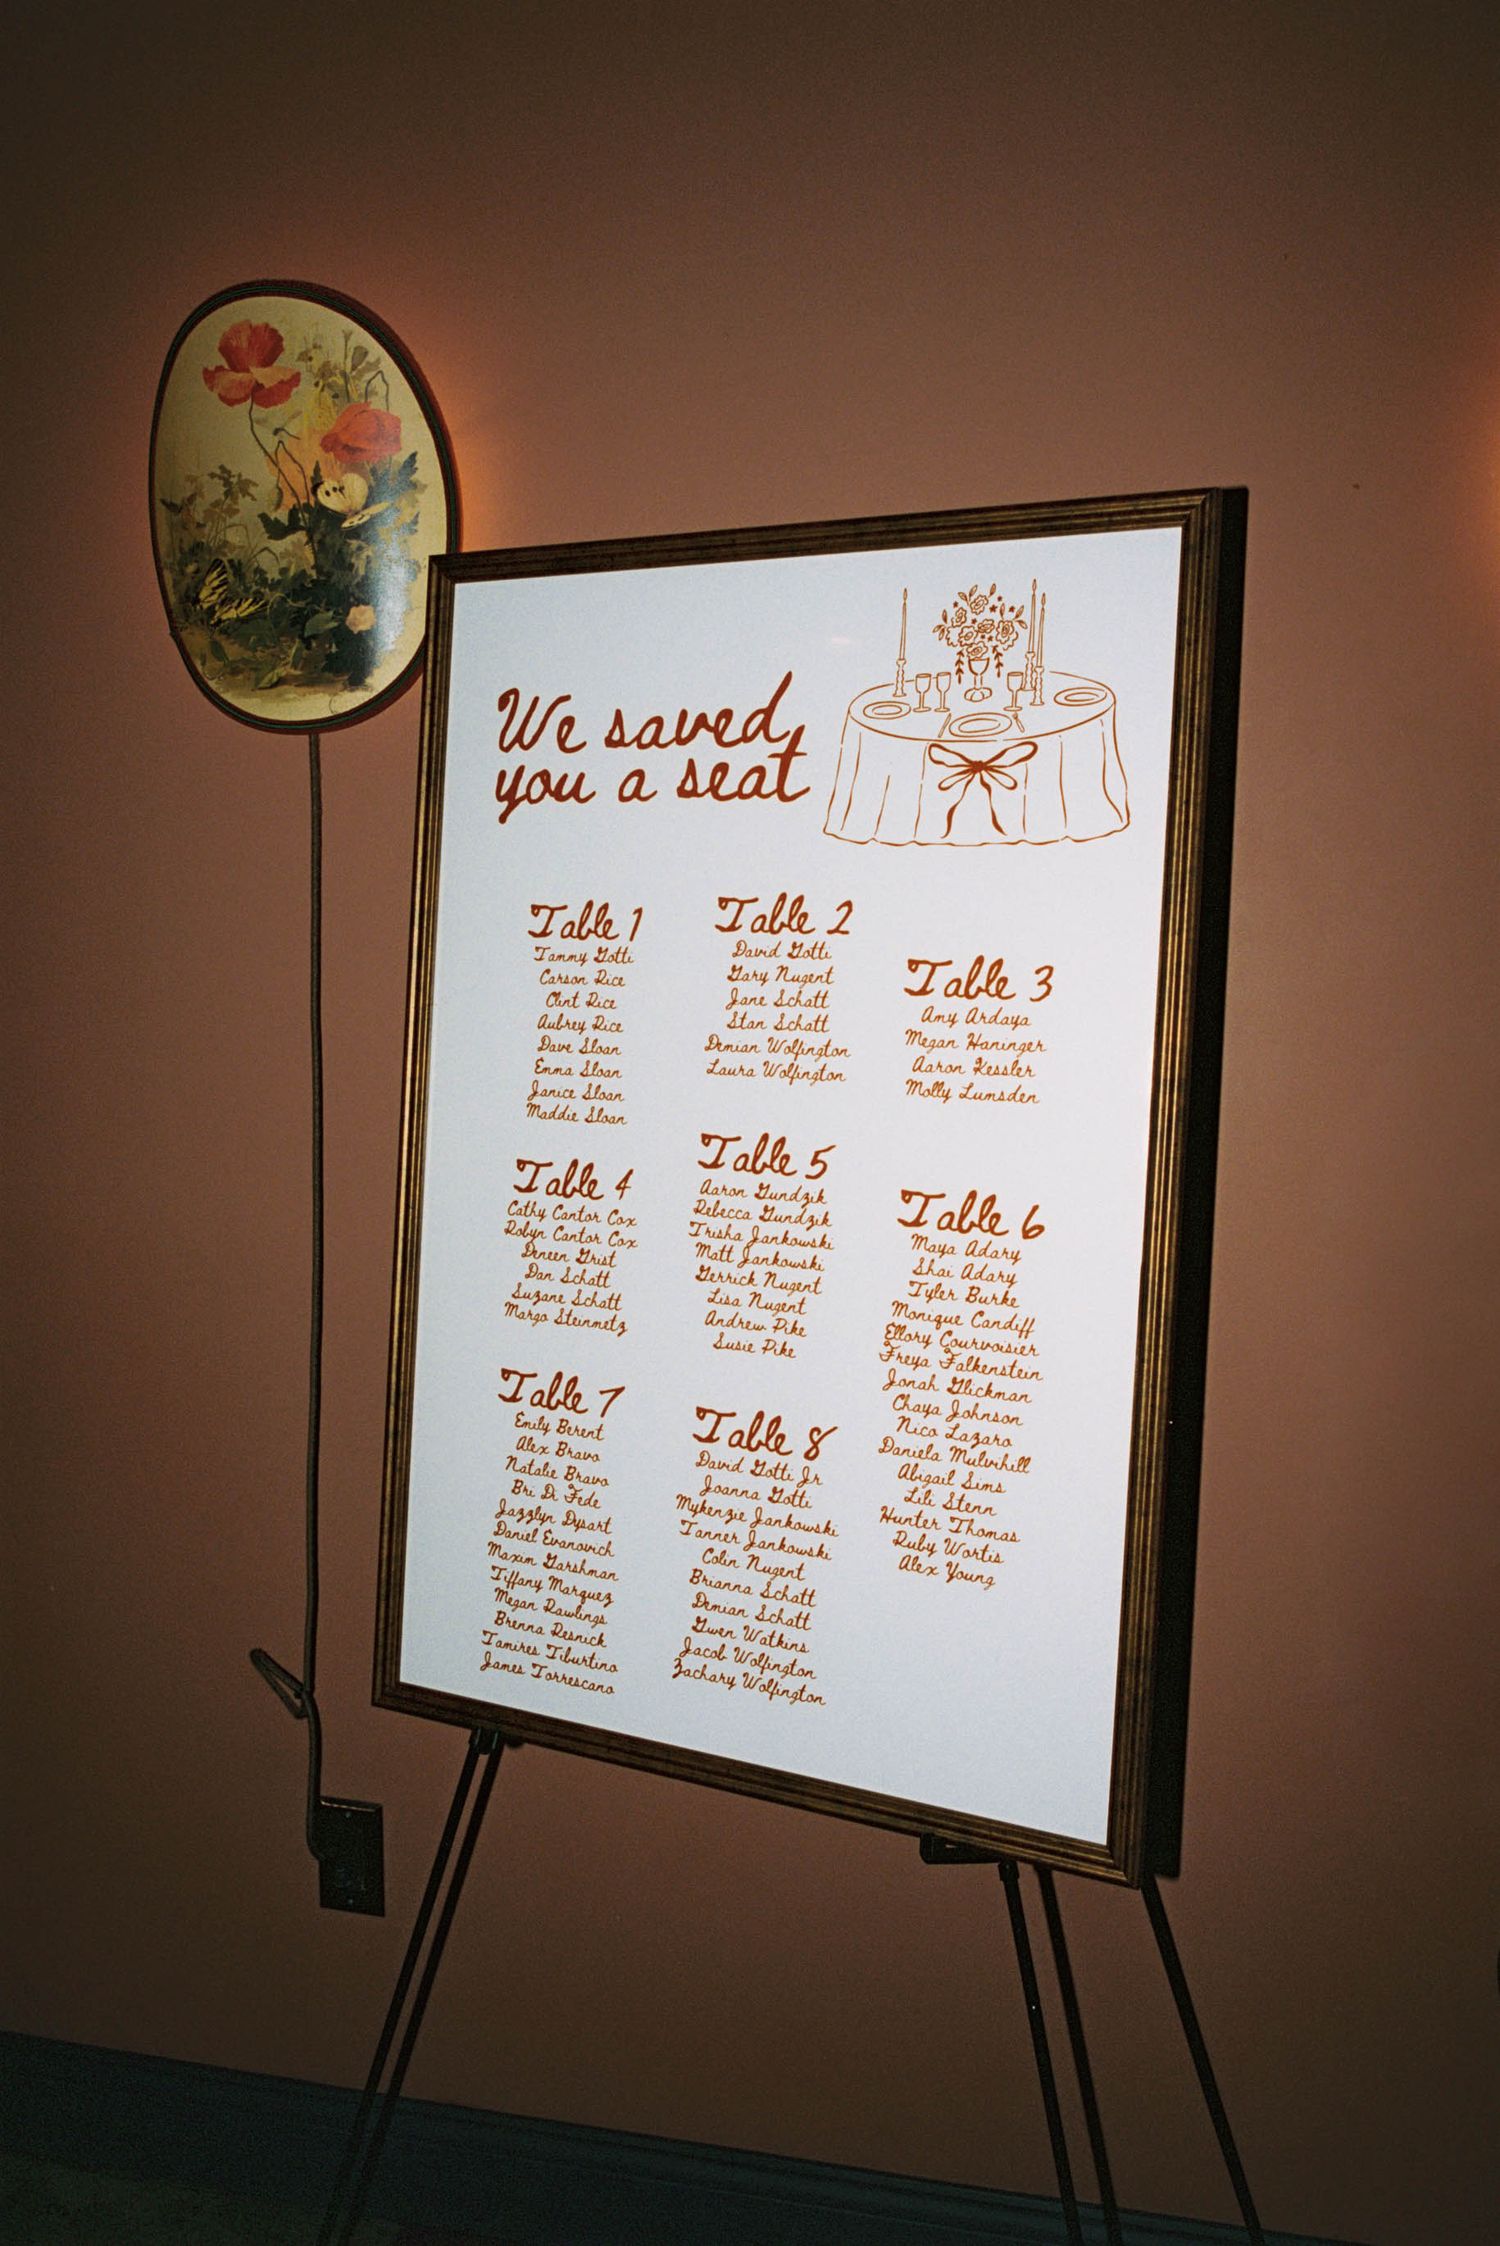 We saved
you a seat
Table 1
Tammy Gotti
Carson Rice
Clint Rice
Aubrey Rice
Dave Sloan
Emma Sloan
Janice Sloan
Maddie Sloan
Table 2
David Gotti
Gary Nugent
Jane Schatt
Stan Schatt
Demian Wolfington
Laura Wolfington
Table 3
Amy Ardaya
Megan Haninger
Aaron Kessler
Molly Lumsden
Table 4
Cathy Cantor Cox
Robyn Cantor Cox
Deneen Grist
Dan Schatt
Suzane Schatt
Margo Steinmetz
Table 5
Aaron Gundzik
Rebecca Gundzik
Trisha Jankowski
Matt Jankowski
Gerrick Nugent
Lisa Nugent
Andrew Pike
Susie Pike
Table 6
Maya Adary
Shai Adary
Tyler Burke
Monique Candiff
Ellory Courvoisier
Freya Falkenstein
Jonah Glickman
Chaya Johnson
Nico Lazaro
Daniela Mulvihill
Abigail Sims
Lili Stenn
Hunter Thomas
Ruby Wortis
Alex Young
Table 7
Emily Berent
Alex Bravo
Natalie Bravo
Bri Di Fede
Jazzlyn Dysart
Daniel Evanovich
Maxim Garshman
Tiffany Marquez
Megan Rawlings
Brenna Resnick
Tamires Tiburtino
James Torrescano
Table 8
David Gotti Jr
Joanna Gotti
Mykenzie Jankowski
Tanner Jankowski
Colin Nugent
Brianna Schatt
Demian Schatt
Gwen Watkins
Jacob Wolfington
Zachary Wolfington